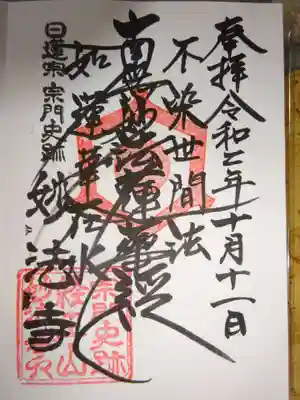 奉拝 令和二年十月十一日
不染世間法
南無妙法蓮華経
如蓮華在水
日蓮宗 宗門史跡 妙法寺
宗門史跡